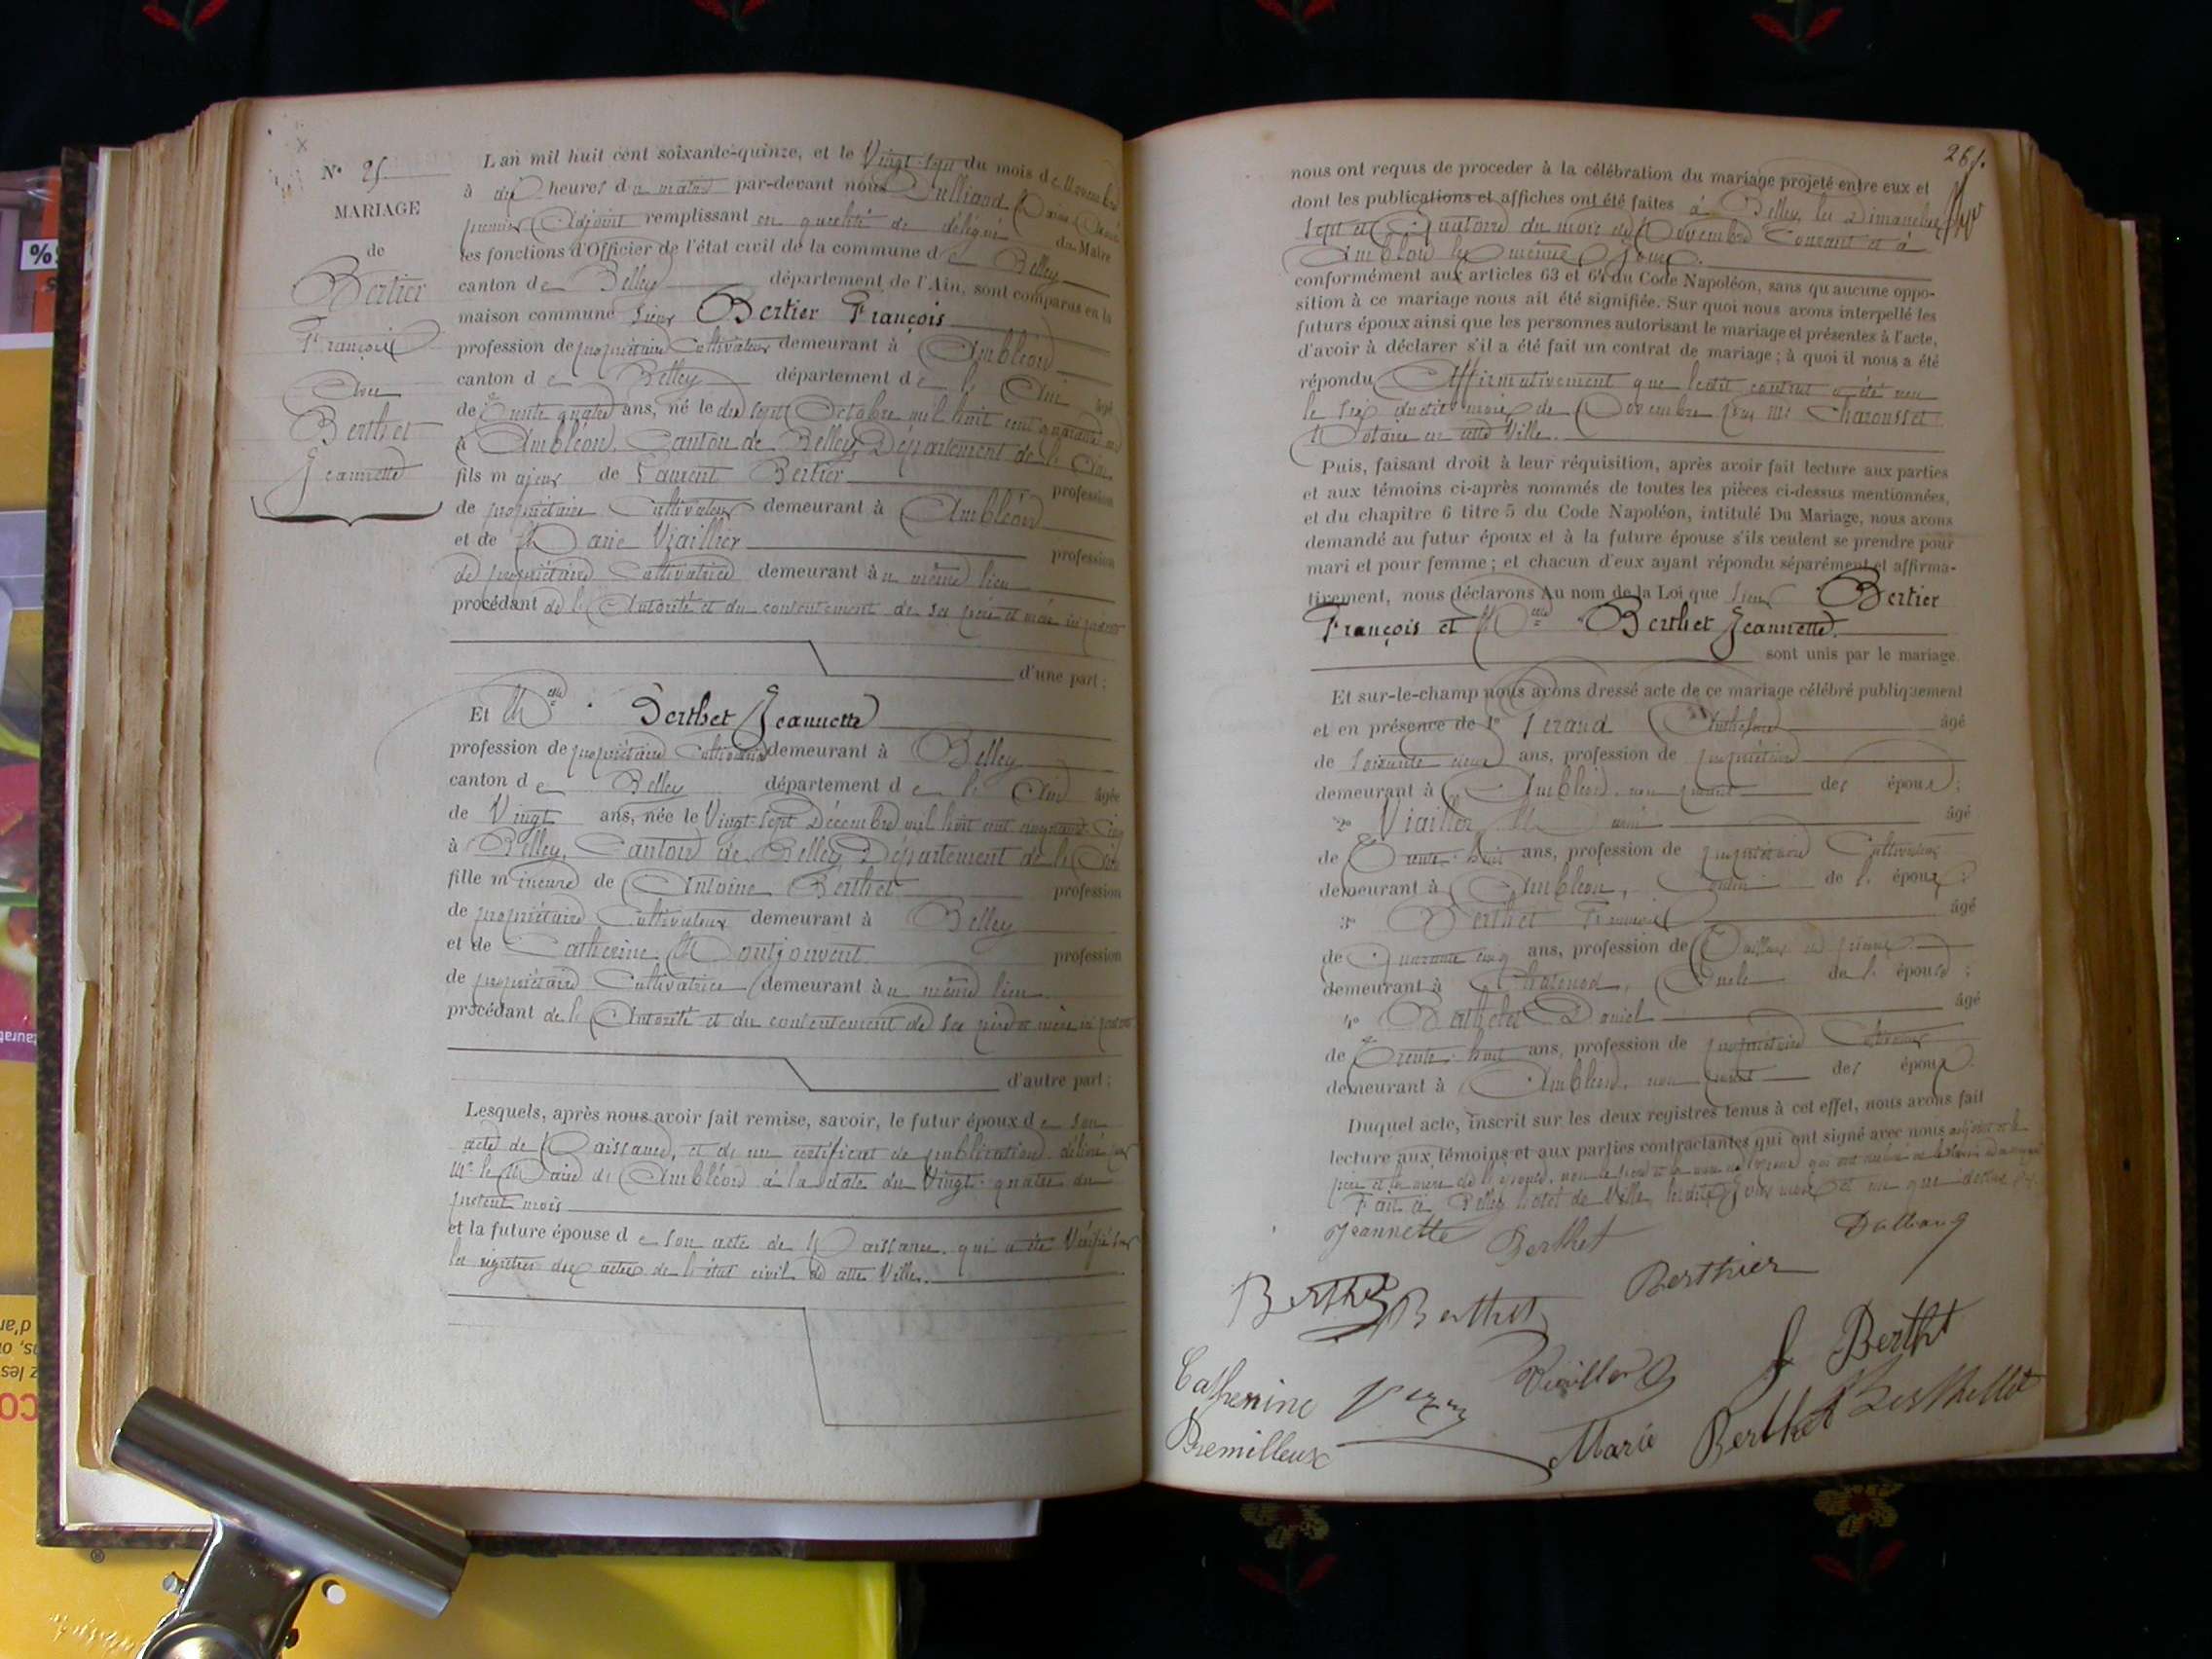 N° 25
MARIAGE
de
Bertier
François
Avec
Berthet
Jeannette
L'an mil huit cent soixante-quinze, et le Vingt-sept du mois de Novembre
à dix heures du matin par-devant nous Dulliand
premier Adjoint remplissant en qualité de délégué du Maire
les fonctions d'Officier de l'état civil de la commune de Belley
canton de Belley département de l'Ain, sont comparus en la
maison commune sieur Bertier François
profession de propriétaire Cultivateur demeurant à Ambléon
canton de Belley département de l'Ain âgé
de Trente quatre ans, né le dix sept Octobre mil huit cent quarante un
à Ambléon, Canton de Belley, Département de l'Ain
fils majeur de Laurent Bertier profession
de propriétaire Cultivateur demeurant à Ambléon
et de Marie Viaillier profession
de propriétaire Cultivatrice demeurant au même lieu
procédant de l'Autorité et du contentement de ses père et mère ici présents
d'une part ;
Et Melle Berthet Jeannette
profession de propriétaire Cultivatrice demeurant à Belley
canton de Belley département de l'Ain âgée
de Vingt ans, née le Vingt-sept Décembre mil huit cent cinquante-cinq
à Belley, Canton de Belley, Département de l'Ain
fille mineure de Antoine Berthet profession
de propriétaire Cultivateur demeurant à Belley
et de Catherine Montjouvent profession
de propriétaire Cultivatrice demeurant au même lieu
procédant de l'Autorité et du contentement de ses père et mère ici présents
d'autre part ;
Lesquels, après nous avoir fait remise, savoir, le futur époux de son
acte de Naissance, et de un certificat de publication délivré par
Mr le Maire de Ambléon à la date du Vingt-quatre du
présent mois
et la future épouse de son acte de Naissance, qui a été Vérifié sur
les registres des actes de l'état civil de cette Ville.
267.
nous ont requis de proceder à la célébration du mariage projeté entre eux et
dont les publications et affiches ont été faites à Belley, les Dimanches
sept et Quatorze du mois de Novembre Courant et à
Ambléon les mêmes Jours.
conformément aux articles 63 et 64 du Code Napoléon, sans qu'aucune oppo-
sition à ce mariage nous ait été signifiée. Sur quoi nous avons interpellé les
futurs époux ainsi que les personnes autorisant le mariage et présentes à l'acte,
d'avoir à déclarer s'il a été fait un contrat de mariage ; à quoi il nous a été
répondu Affirmativement que ledit contrat a été reçu
le six dudit mois de Novembre par Me Charousset
Notaire en cette Ville.
Puis, faisant droit à leur réquisition, après avoir fait lecture aux parties
et aux témoins ci-après nommés de toutes les pièces ci-dessus mentionnées,
et du chapitre 6 titre 5 du Code Napoléon, intitulé Du Mariage, nous avons
demandé au futur époux et à la future épouse s'ils veulent se prendre pour
mari et pour femme ; et chacun d'eux ayant répondu séparément et affirma-
tivement, nous déclarons Au nom de la Loi que sieur Bertier
François et Melle Berthet Jeannette.
sont unis par le mariage
Et sur-le-champ nous avons dressé acte de ce mariage célébré publiquement
et en présence de 1° Anthelme âgé
de soixante deux ans, profession de propriétaire
demeurant à Ambléon, non parent des époux ;
2° Viailler âgé
de Trente-huit ans, profession de propriétaire Cultivateur
demeurant à Ambléon, Cousin de l'époux ;
3° Berthet François âgé
de Quarante cinq ans, profession de Tailleur de pierre
demeurant à Oncle de l'épouse ;
4° Daniel âgé
de Trente-huit ans, profession de propriétaire Cultivateur
demeurant à Ambléon, non parent des époux.
Duquel acte, inscrit sur les deux registres tenus à cet effet, nous avons fait
lecture aux témoins et aux parties contractantes qui ont signé avec nous
père et la mère de l'épouse, non le père et la mère de l'époux qui ont
Fait à Belley hôtel de Ville, lesdits Jour mois et an que dessus
Jeannette Berthet Dulliand
Berthet Berthier
Viailler J Berthet
Catherine
Premilleux Marie Berthet Berthellet